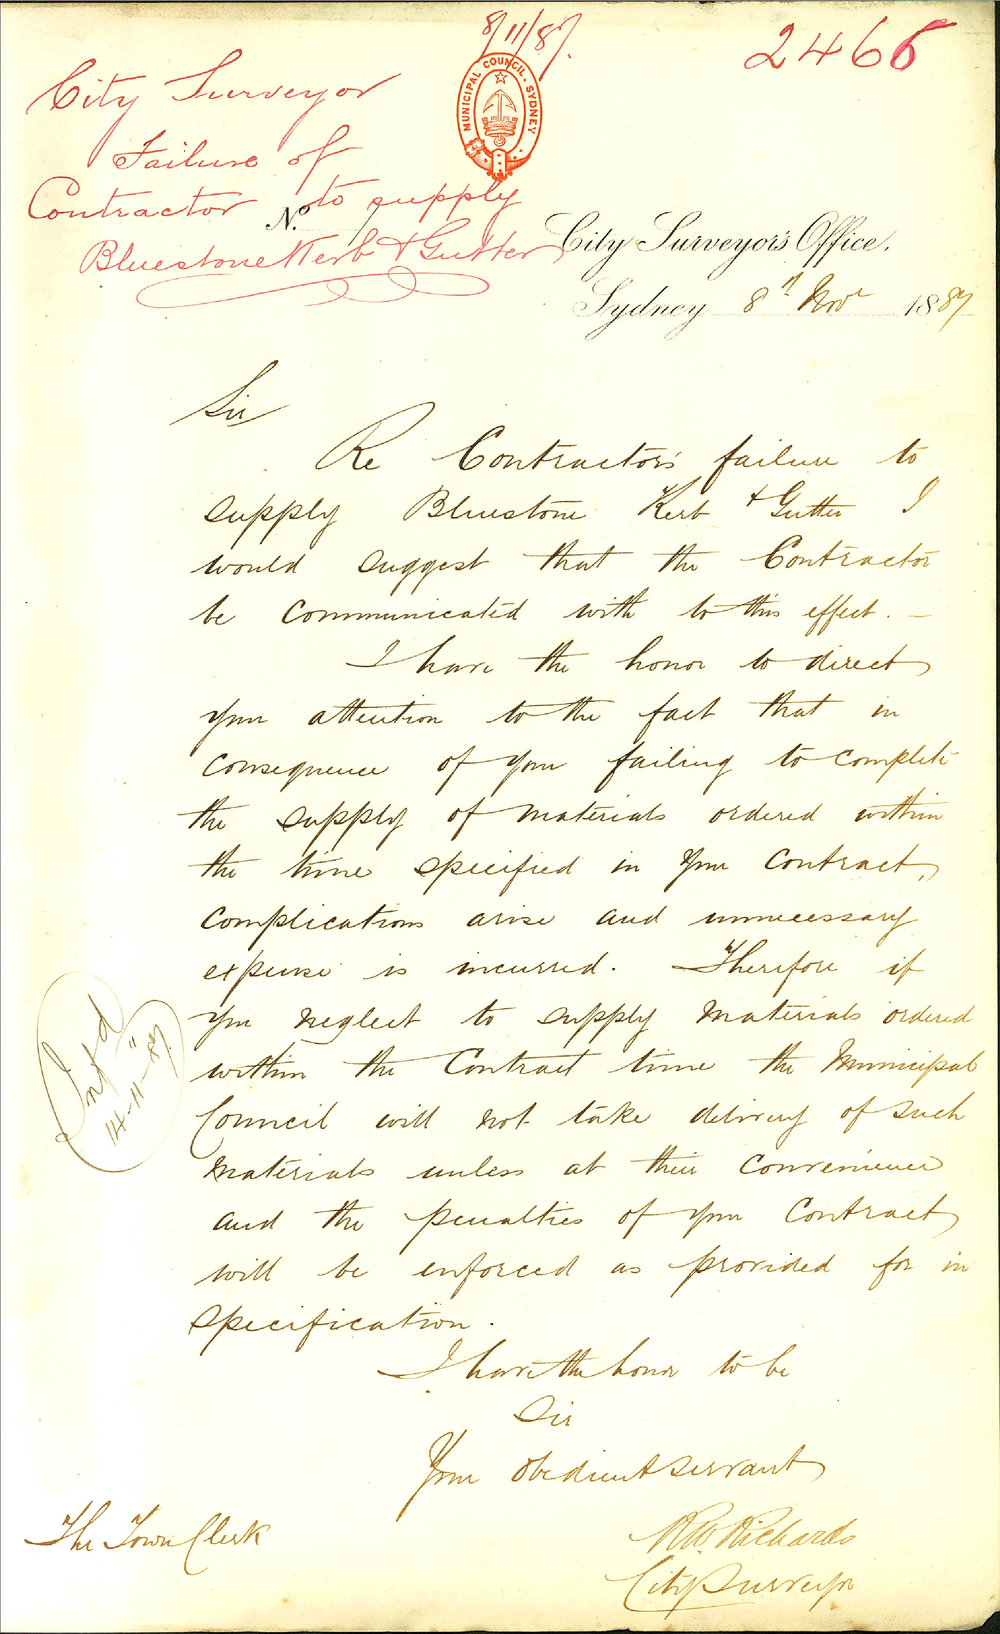 8/11/87.
2466
MUNICIPAL COUNCIL. SYDNEY
City Surveyor
Failure of
Contractor to supply
Bluestone Kerb & Gutter
No.
City Surveyor's Office,
Sydney 8th Nov 1887
Sir
Re Contractor's failure to
supply Bluestone Kerb & Gutter I
would suggest that the Contractor
be communicated with to this effect. —
I have the honor to direct
your attention to the fact that in
consequence of your failing to complete
the supply of materials ordered within
the time specified in your contract,
complications arise and unnecessary
expense is incurred. Therefore if
you neglect to supply materials ordered
within the Contract time the Municipal
Council will not take delivery of such
materials unless at their convenience
and the penalties of your Contract
will be enforced as provided for in
specification.
14-11-87
I have the honor to be
Sir
Your obedient servant
R.W. Richards
City Surveyor
The Town Clerk